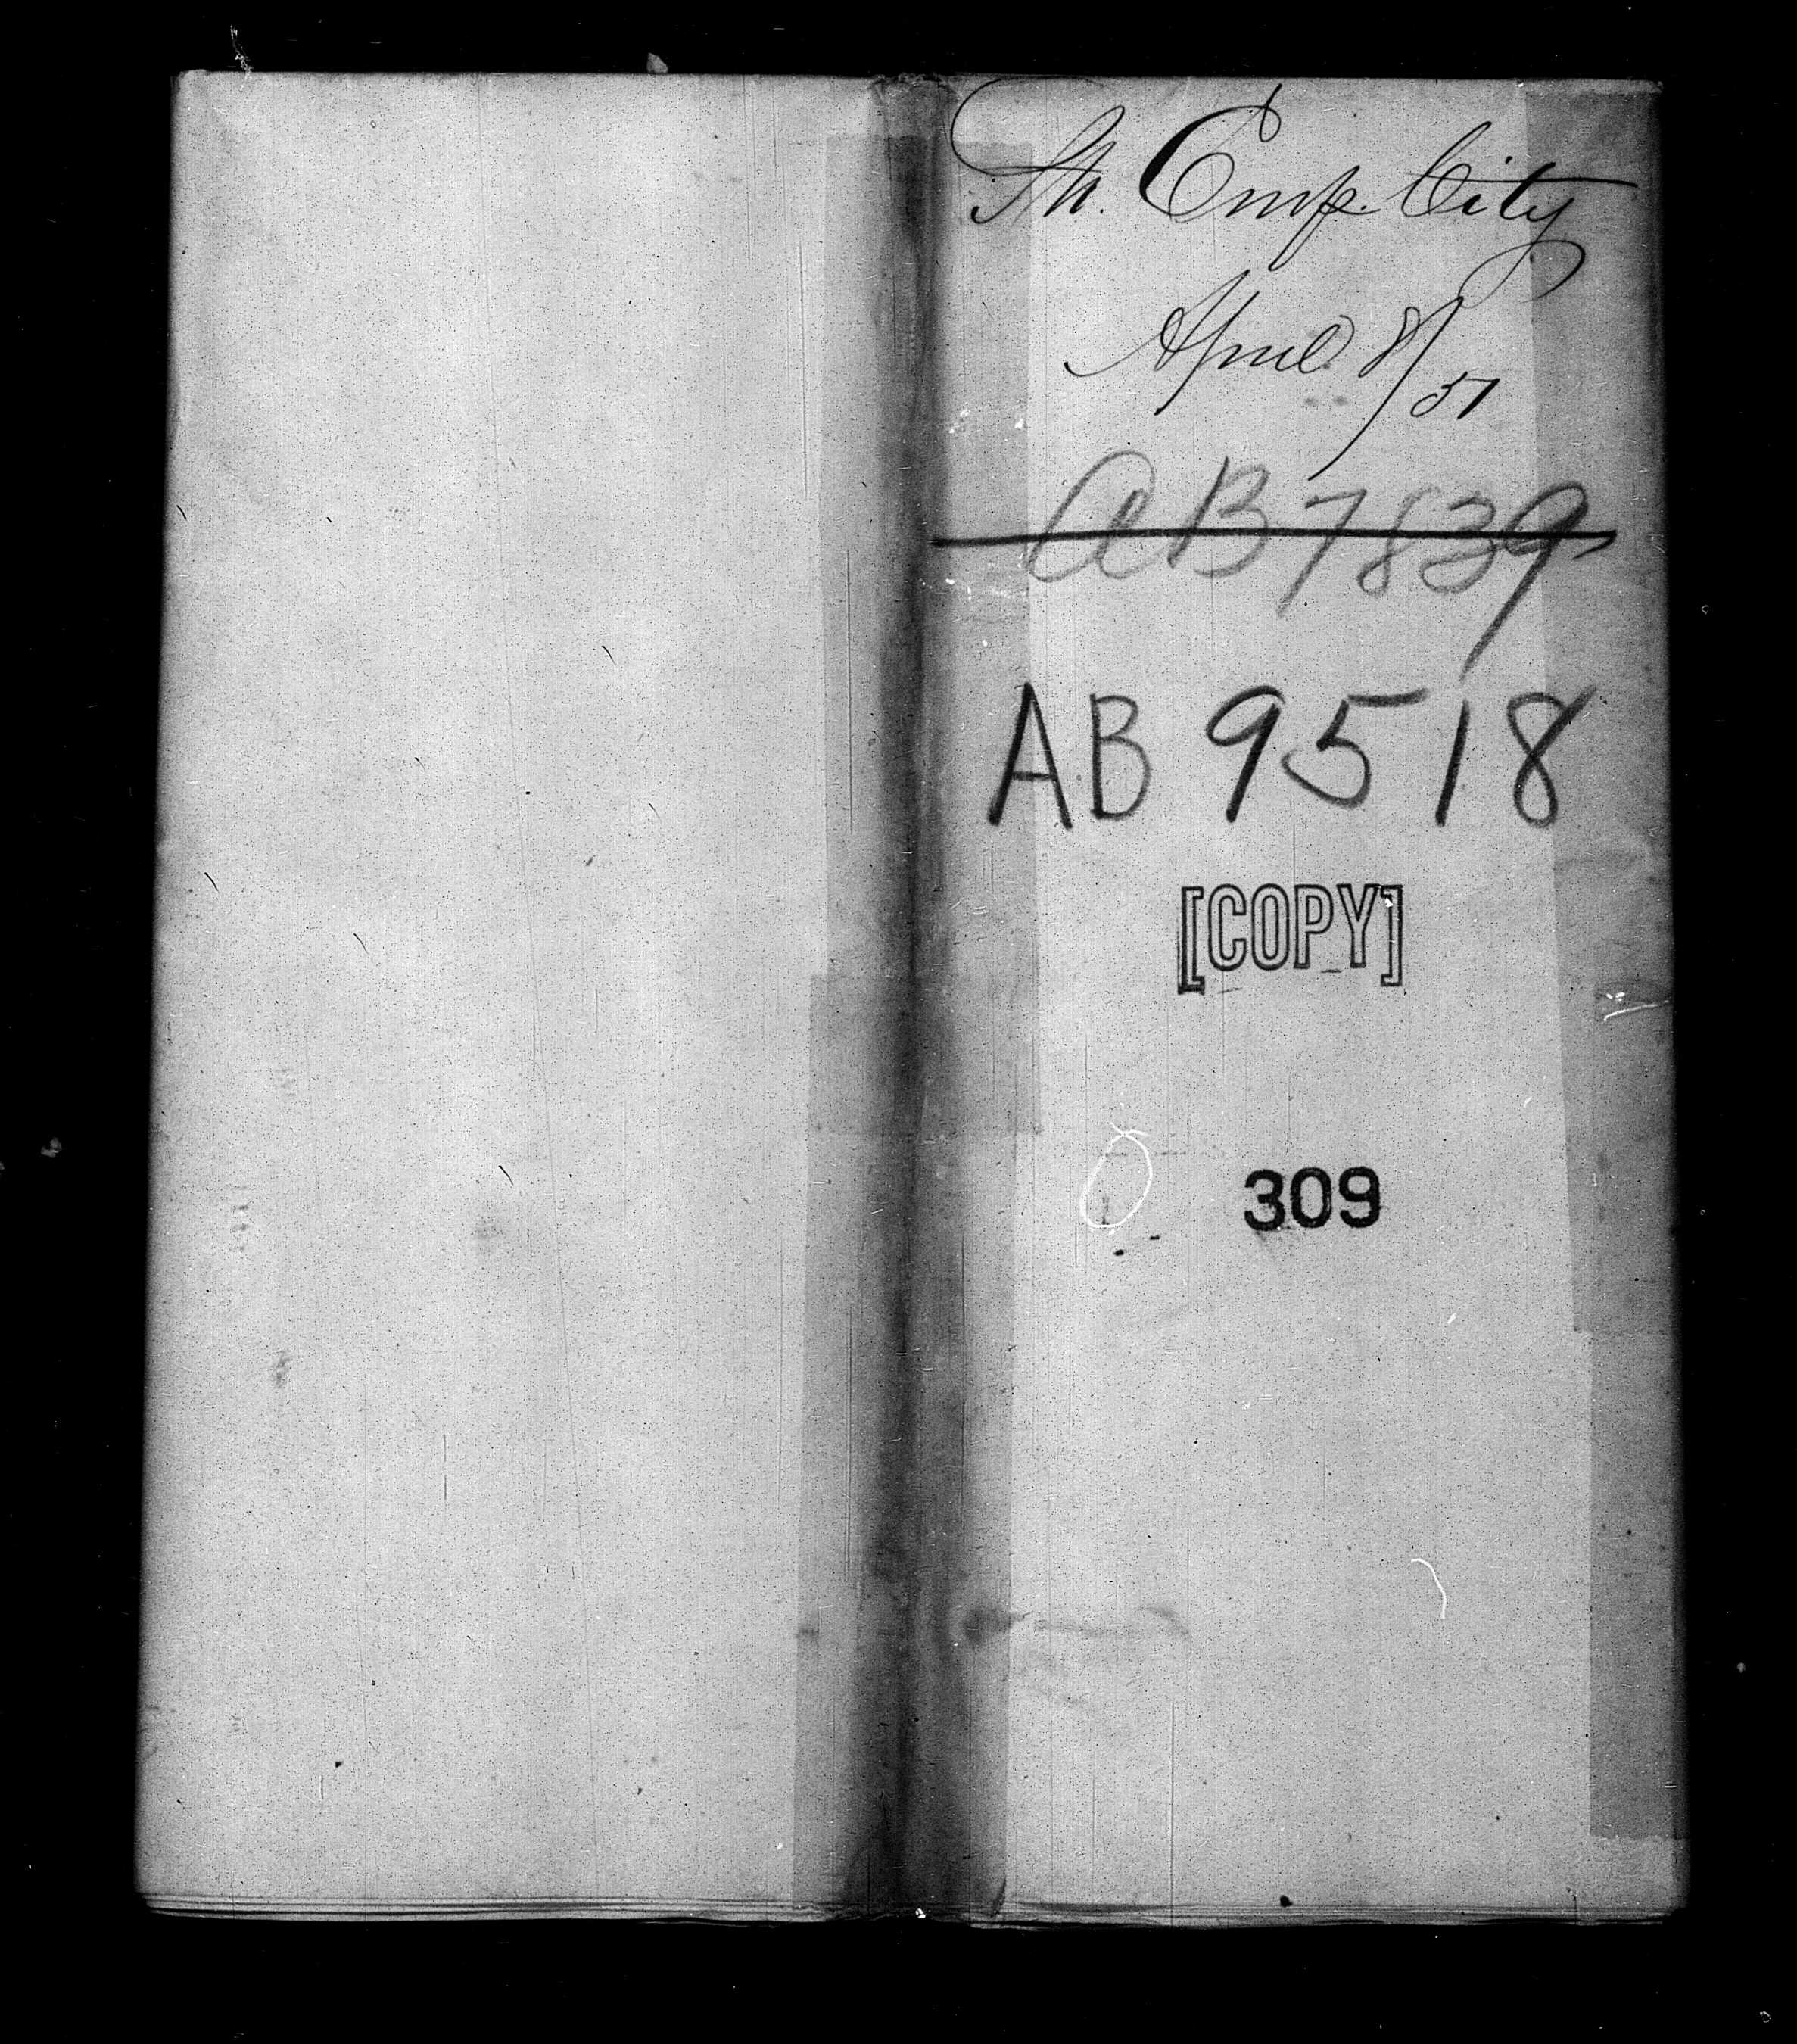 Sh. Emp. City
April 8/51
AB 7839
AB 9518
[COPY]
309